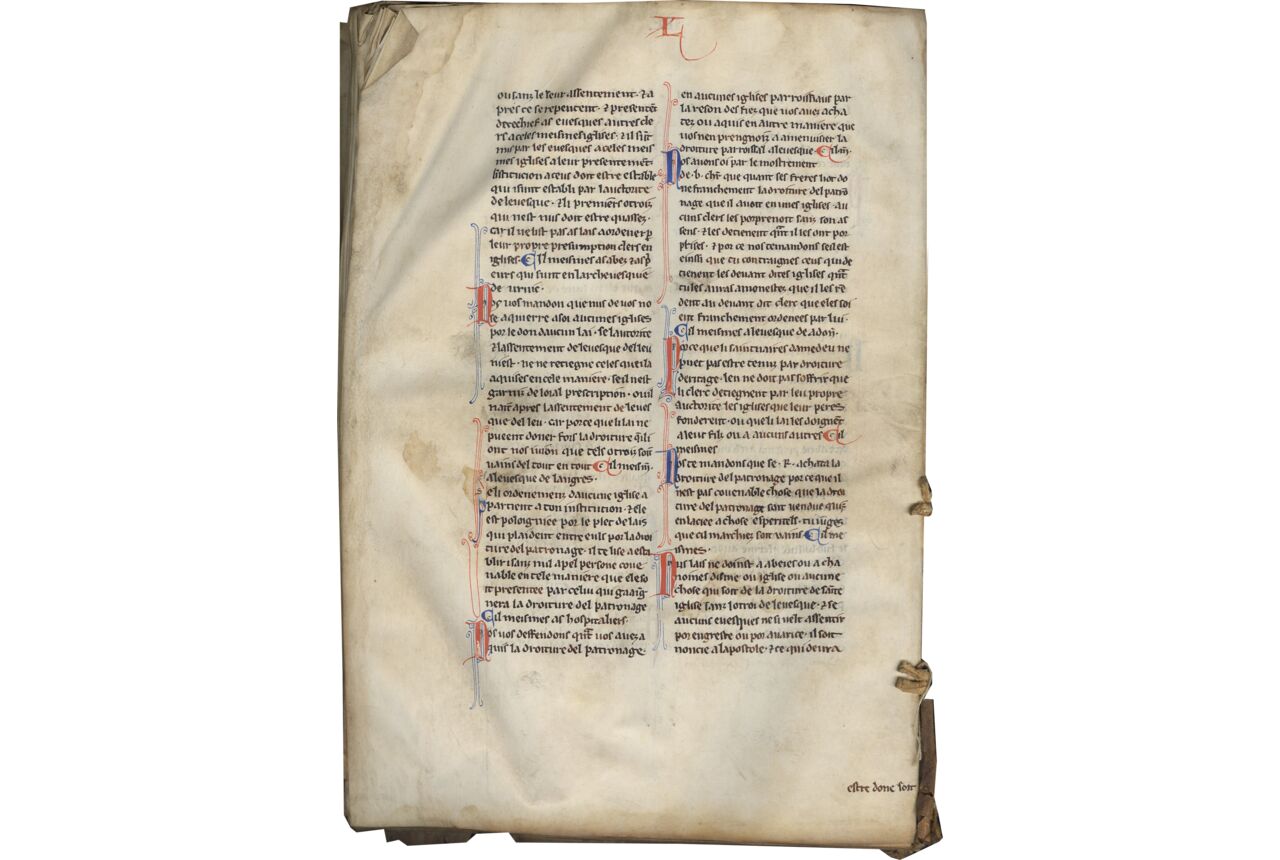 L
ou sanz le leur assentement · ⁊ a
pres ce se repentent · ⁊ presentēt
derechief as evesques autres cle
rs a celes meismes iglises · ⁊ il sūt
mis par les evesques a celes meis
mes iglises a leur presentemēt
linstitucion a ceus doit estre estable
qui isunt establi par lauctorite
de levesque · ⁊ li premiers otroiz
qui nest nus doit estre quassez ·
car il ne list pas as lais a ordener p̄
leur propre presumption clers en
iglises · Cil meismes as abez ⁊ as p̄
eurs qui sunt en larchevesque
de
Nos vos mandon que nus de vos no
se a querre a soi aucunes iglises
por le don daucun lai · se lauctorite
⁊ lassentement de levesque del leu
niest · ne ne retiegne celes que il a
aquises en cele maniere · se il nest
garniz de loial prescription · ou il
nait apres lassentement de leves
que del leu · car por ce que li lai ne
pueent doner fors la droiture q̄ il i
ont nos vuion que tels otroiz soit
vains del tout en tout Cil meism̄ ·
a levesque de langres ·
Se li ordenemenz daucune iglise a
partient a ton institution · ⁊ ele
est poloigniee por le plet de lais
qui plaident entre euls por la droi
ture del patronage · il te lise a esta
blir i sanz nul apel persone cove
nable en tele maniere que ele so
it presentee par celui qui gaaig
nera la droiture del patronage
Cil meismes as hospitaliers ·
Nos vos deffendons q̄nt vos avez a
quis la droiture del patronage ·
en aucunes iglises parroissiaus par
la reson des fiez que vos avez acha
tez ou aquis en autre maniere que
vos nen prengnoiz a amenuisier la
droiture parroissial a levesque Cil m̄ ·
Nos avons oi par le mostrement
de · b · ch̄r que quant ses freres lior do
ne franchement la droiture del patro
nage que il avoit en unes iglises · au
cuns clers les porprenoit sanz son as
sens · ⁊ les detienent q̄nt il les ont por
prises · ⁊ por ce nos comandons se il est
einssi que tu contraignes ceus qui de
tienent les devant dites iglises q̄nt
tu les auras amonestez que il les re
dent au devant dit clerc que eles soi
ent franchement ordenees par lui ·
Cil meismes a levesque de
Por ce que li saintuaires damedeu ne
puet pas estre tenuz par droiture
deritage · len ne doit pas soffrir que
li clerc detiegnent par leu propre
auctorite les iglises que leur peres
fonderent · ou que li lai les doignēt
a leur filz ou a aucuns autres Cil
meismes
Nos te mandons que se · R · achata la
droiture del patronage por ce que il
nest pas covenable chose que la droi
ture del patronage soit vendue quē
enlaciee a chose esperitels · tu juges
que cil marchiez soit vains · Cil me
ismes ·
Nus lais ne doinst a abeies ou a cha
noines disme ou iglise ou aucune
chose qui soit de la droiture de saīte
iglise sanz lotroi de levesque · ⁊ se
aucuns evesques ne si velt assentir
por engreste ou por avarice · il soit
noncie a lapostole · ⁊ ce qui devra
estre donc soit